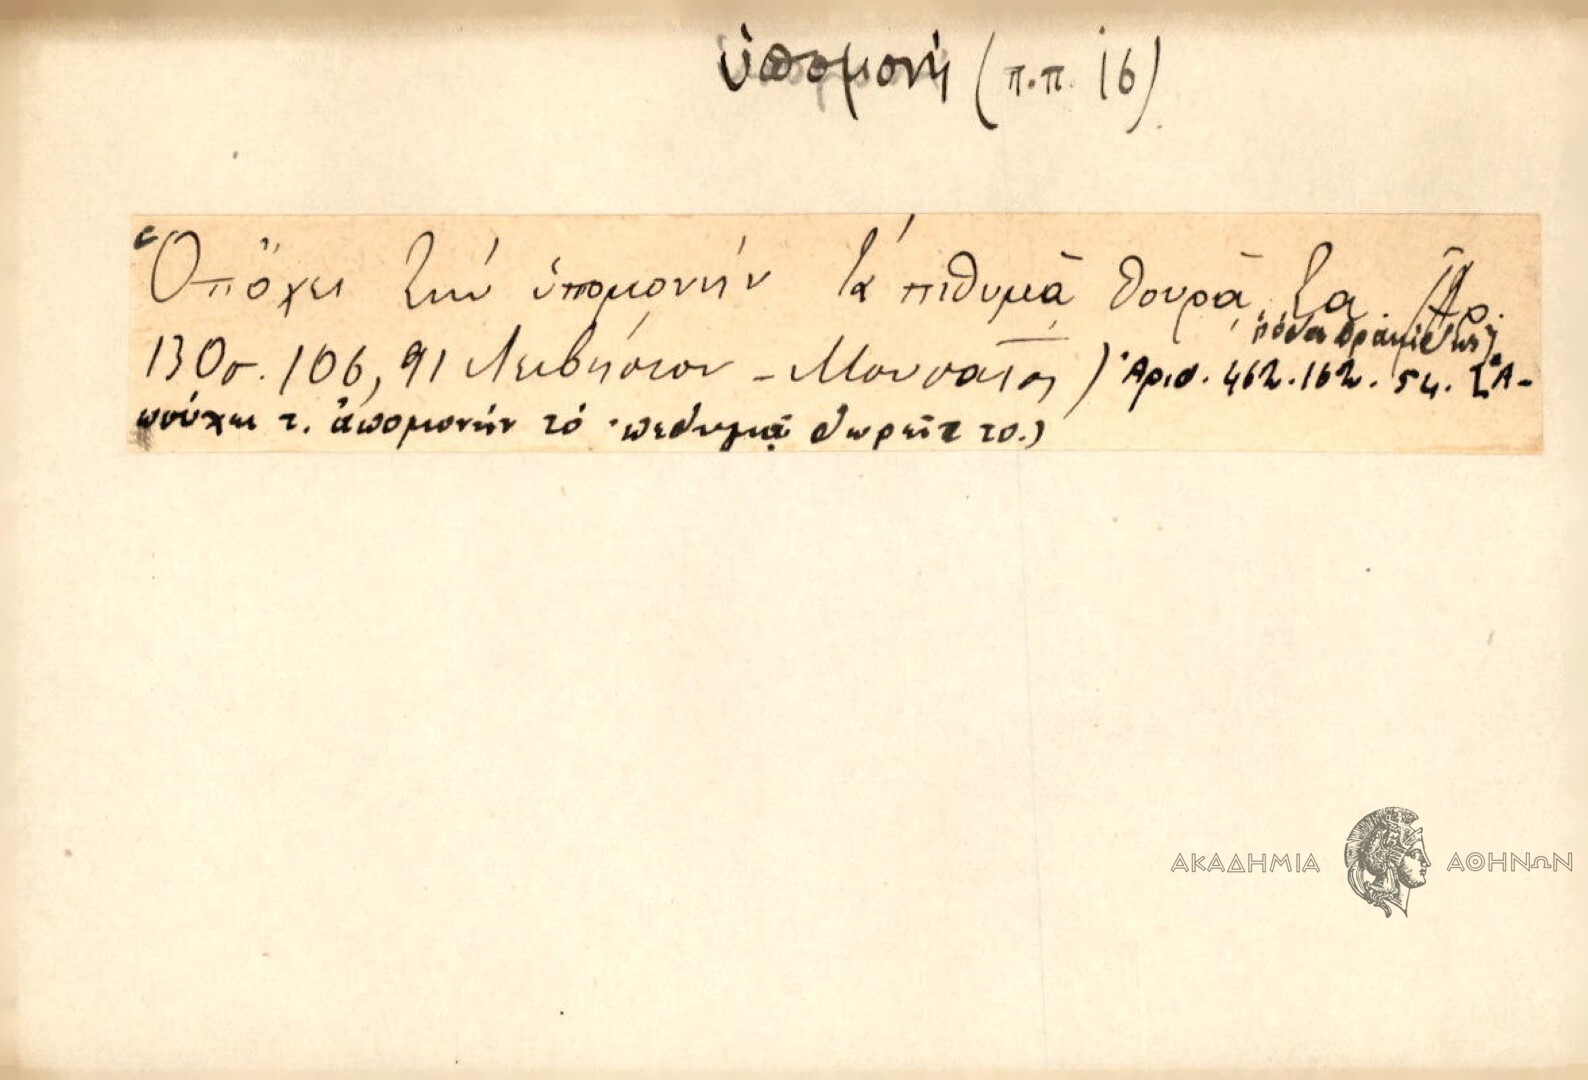 ὑπομονή (π.π. 16)
Ὁπὄχει τὴν ὑπομονὴν τά πιθυμᾶ θουρᾶ τα. Ἀρ.
130σ. 106, 91 Λειβήσιον - Μουσαῖος) Ἀριθ. 462. 162. 54. [Ἀ-
πούχει τ. ἀπομονὴν τό 'πεθυμᾷ θωρεῖ το.)
ΑΚΑΔΗΜΙΑ ΑΘΗΝΩΝ